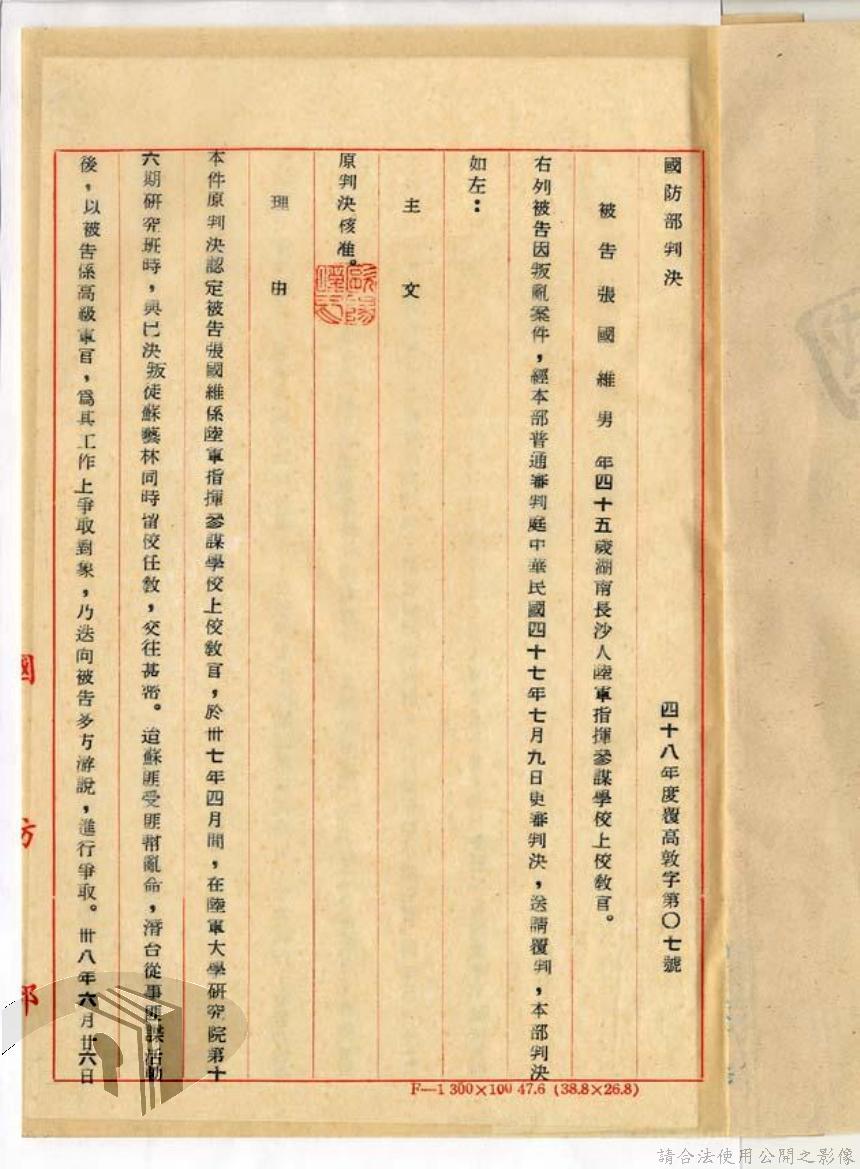 國防部判決
四十八年度覆高敦字第〇七號
被告張國維男　年四十五歲湖南長沙人陸軍指揮參謀學校上校教官。
右列被告因叛亂案件，經本部普通審判庭中華民國四十七年七月九日更審判決，送請覆判，本部判決
如左：
主文
原判決核准。
理由
本件原判決認定被告張國維係陸軍指揮參謀學校上校教官，於卅七年四月間，在陸軍大學研究院第十
六期研究班時，與已決叛徒蘇藝林同時留校任教，交往甚密。迨蘇匪受匪幫亂命，潛台從事匪諜活動
後，以被告係高級軍官，爲其工作上爭取對象，乃迭向被告多方游說，進行爭取。卅八年六月廿六日
國防部
F—1 300×100 47.6 (38.8×26.8)
請合法使用公開之影像